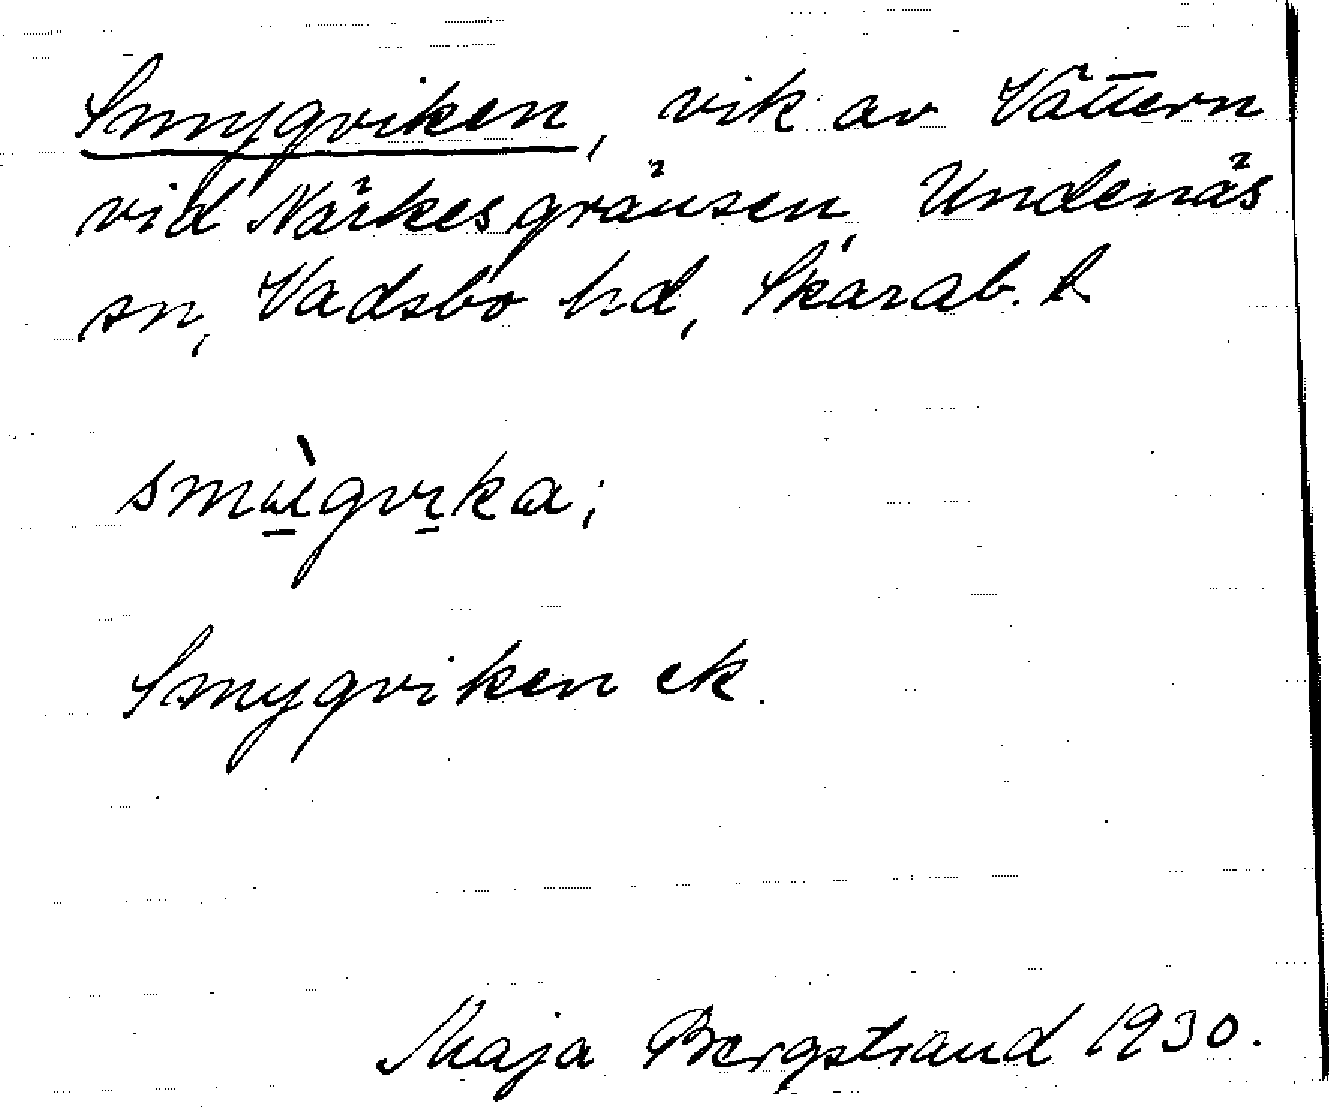 Smygviken, vik av Vättern
vid Närkesgränsen, Undenäs
sn, Vadsbo hd, Skarab. l.
smỳgvika;
Smygviken ek.
Maja Bergstrand 1930.